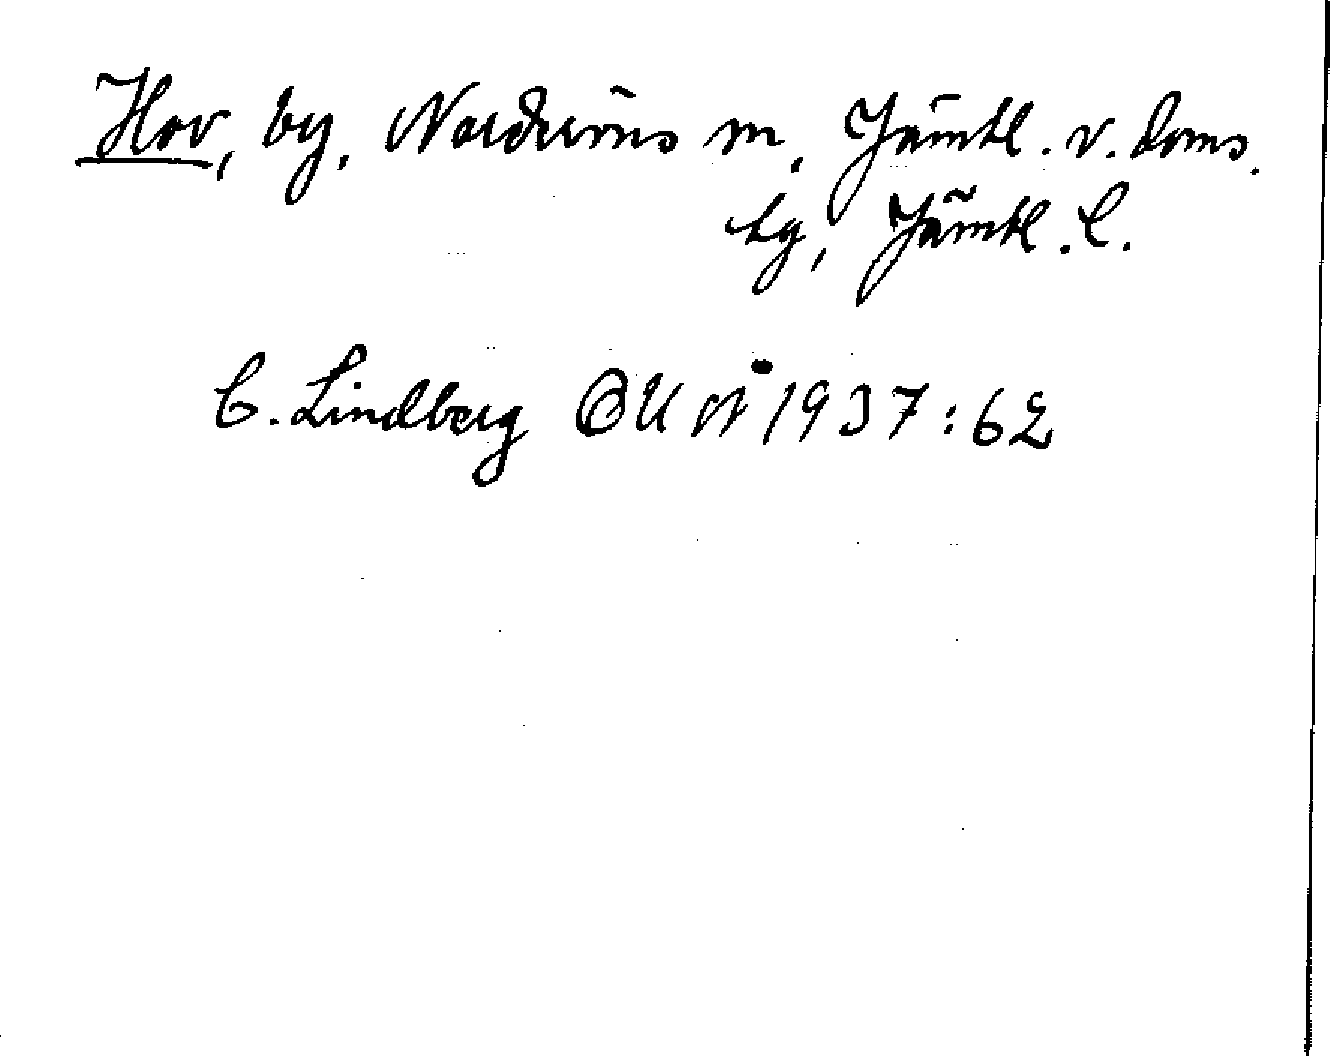 Hov, by, Norderöns sn, Jämtl. v. doms.
sg, Jämtl. l.
C. Lindberg OUÅ 1937:62